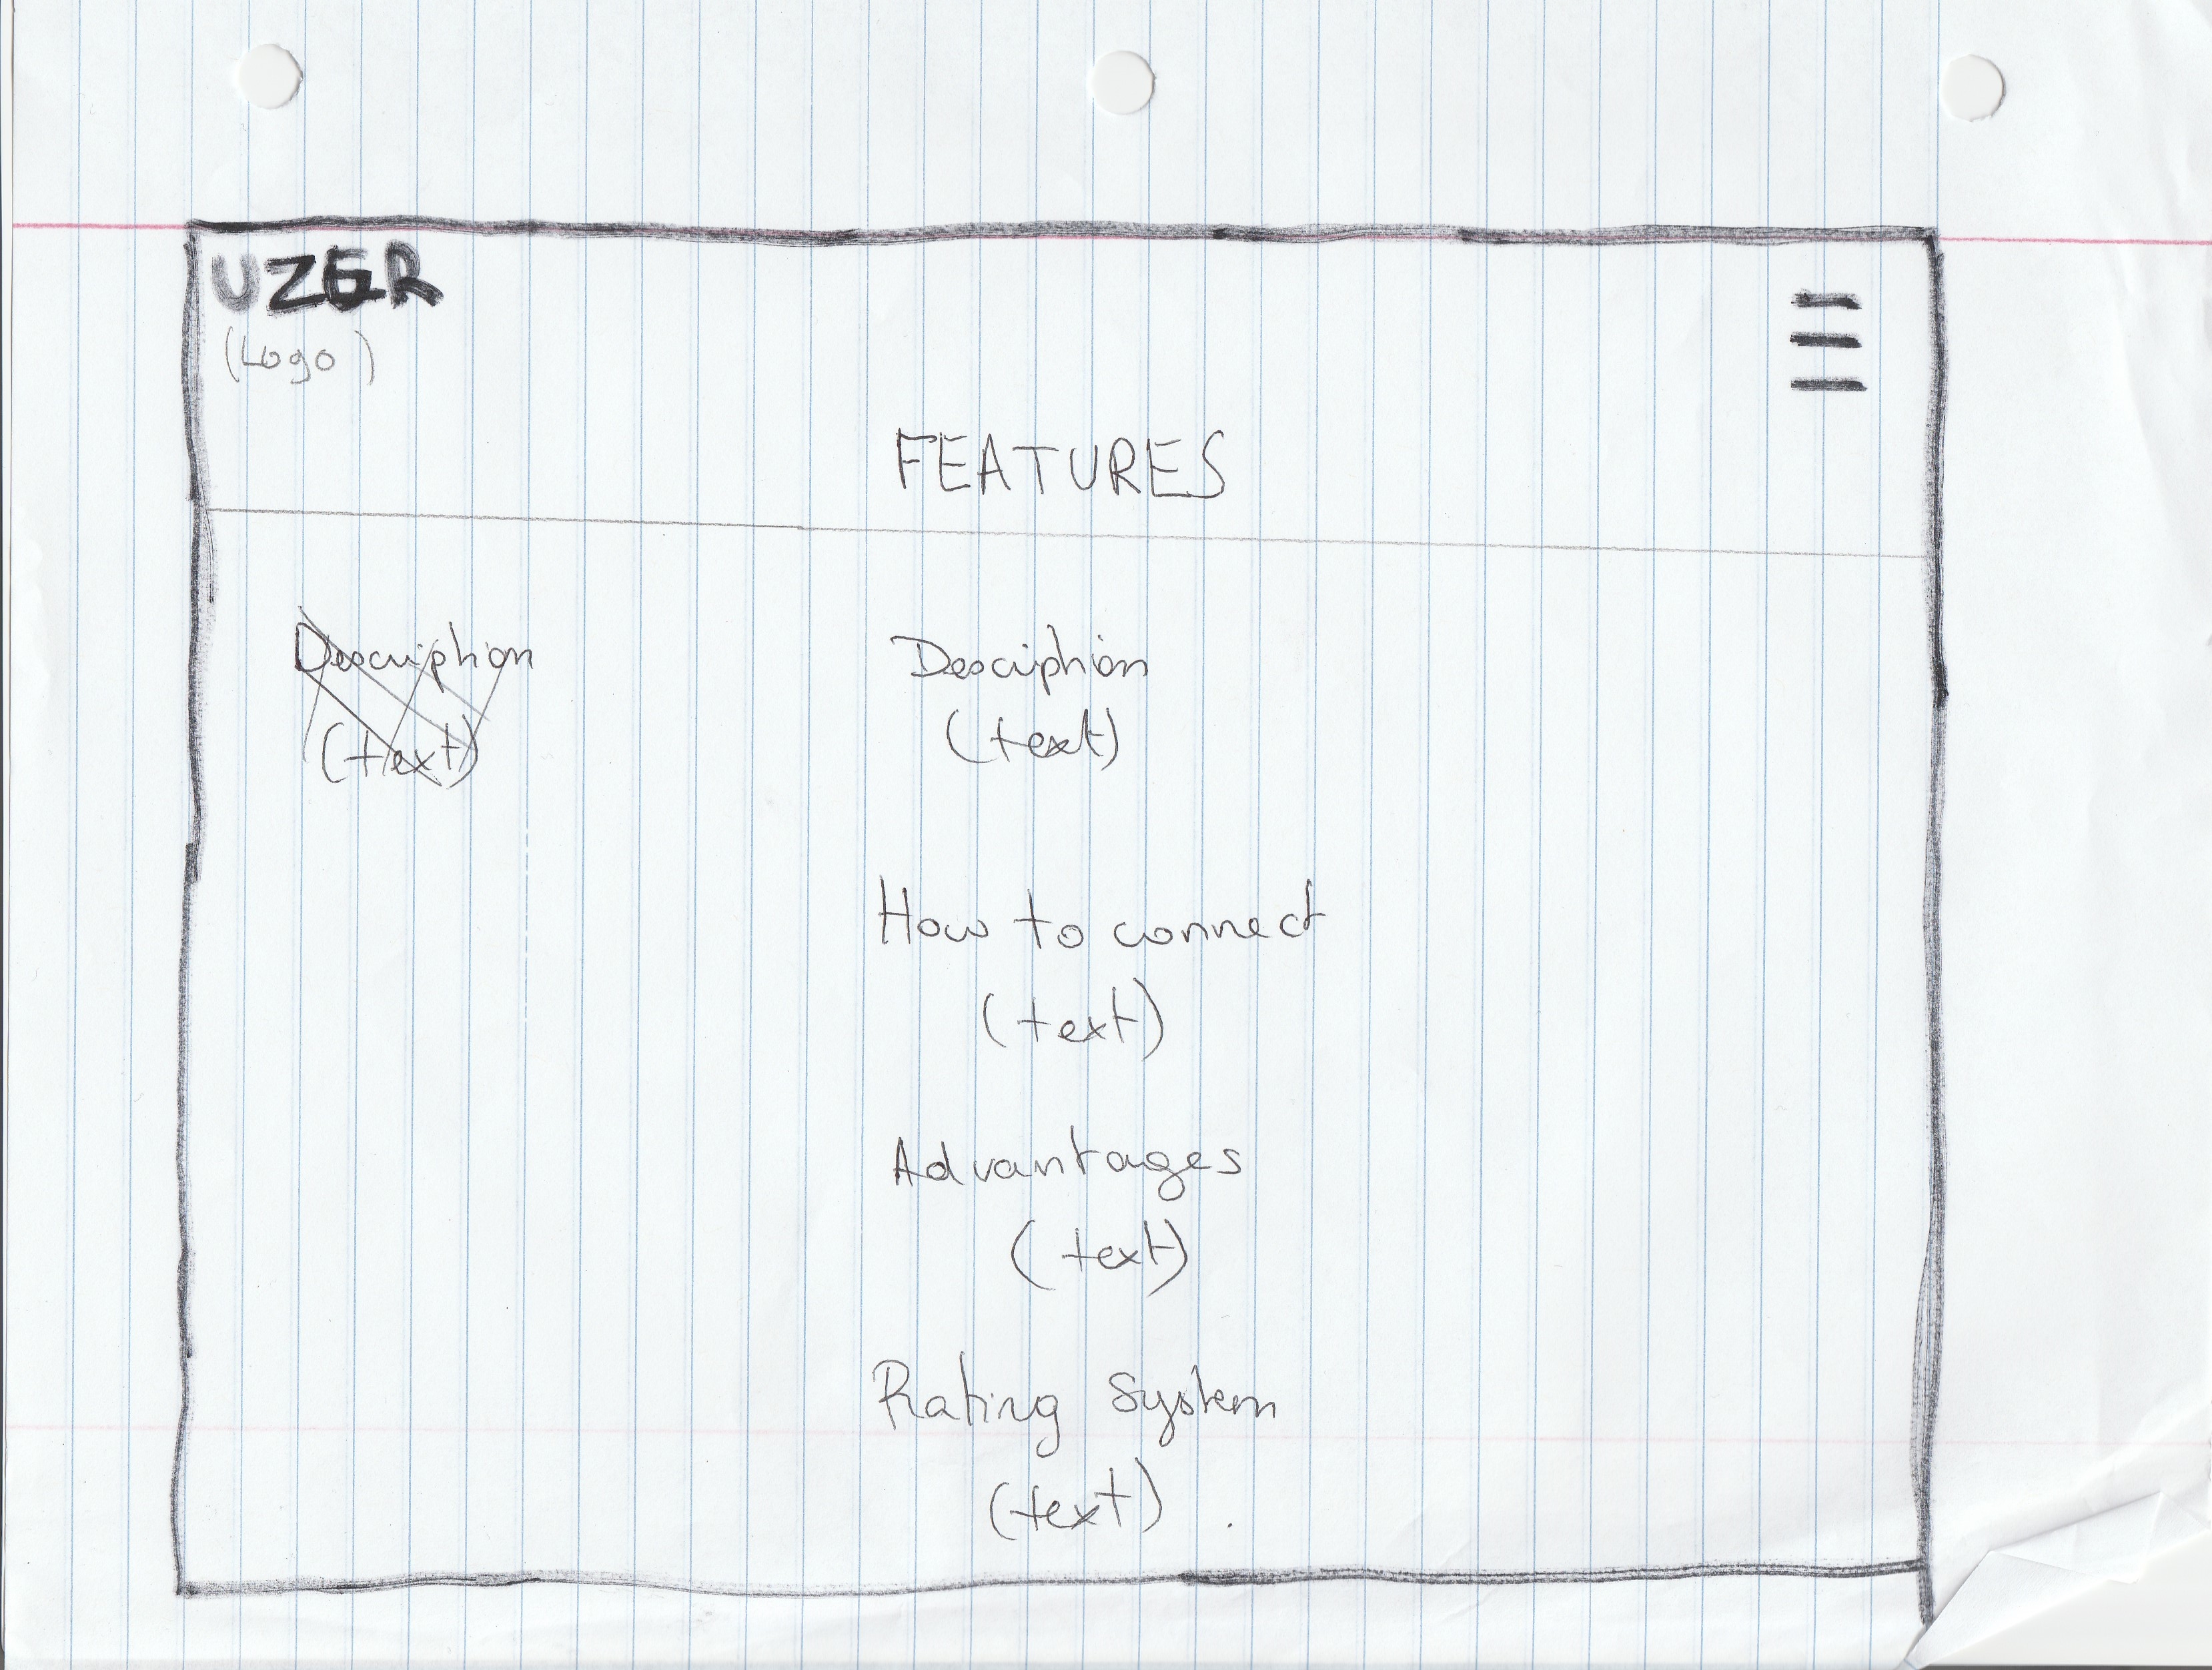 UZER
(Logo)
FEATURES
Description
(text)
Description
(text)
How to connect
(text)
Advantages
(text)
Rating System
(text)